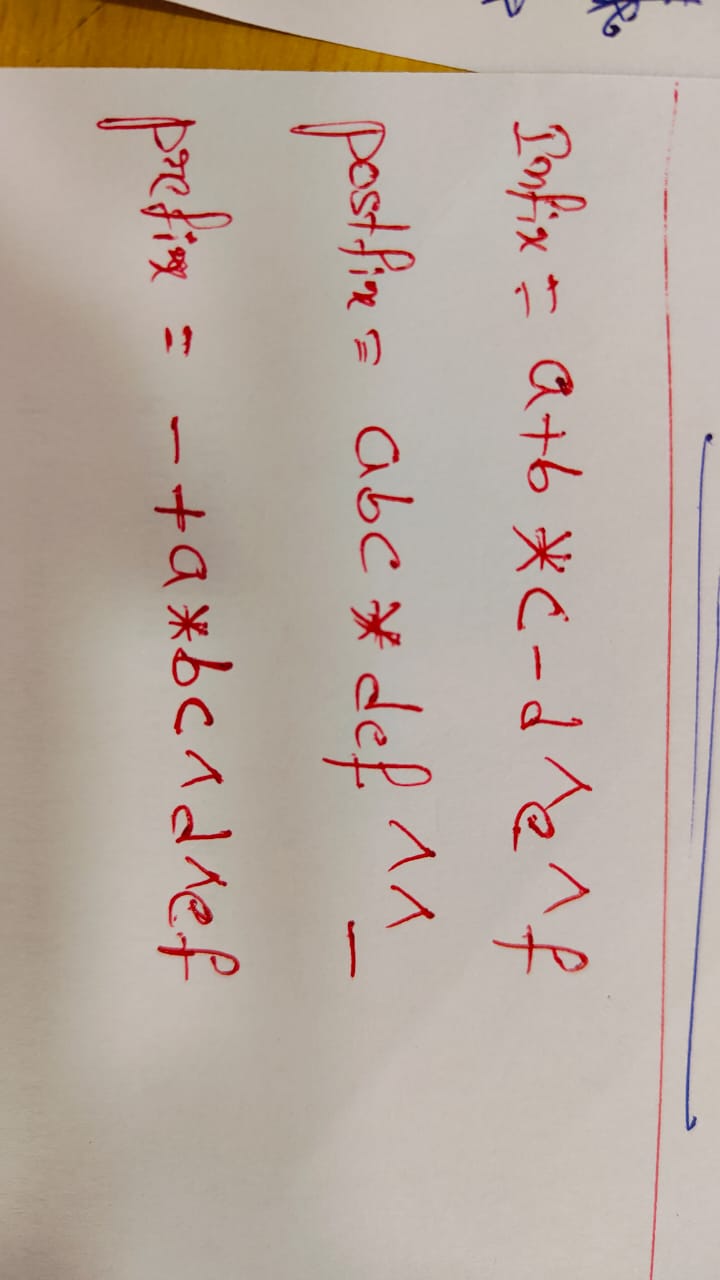 Infix = a+b*c-d^e^f
postfix = abc*def^^-
prefix = -+a*bc^d^ef